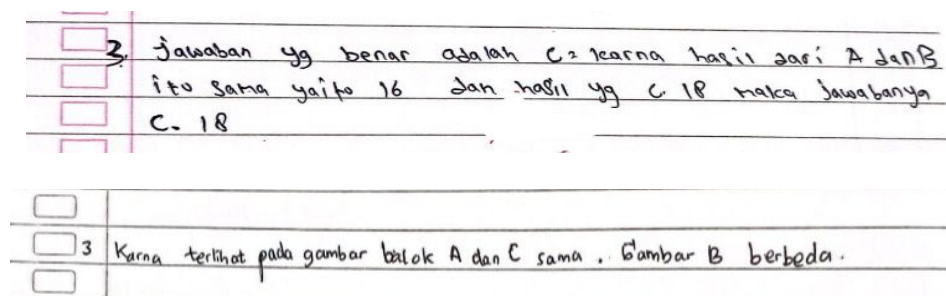 3. jawaban yg benar adalah C = karna hasil dari A dan B
ito sama yaito 16 dan hasil yg C. 18 maka jawabanya
C. 18
3 Karna terlihat pada gambar balok A dan C sama. Gambar B berbeda.